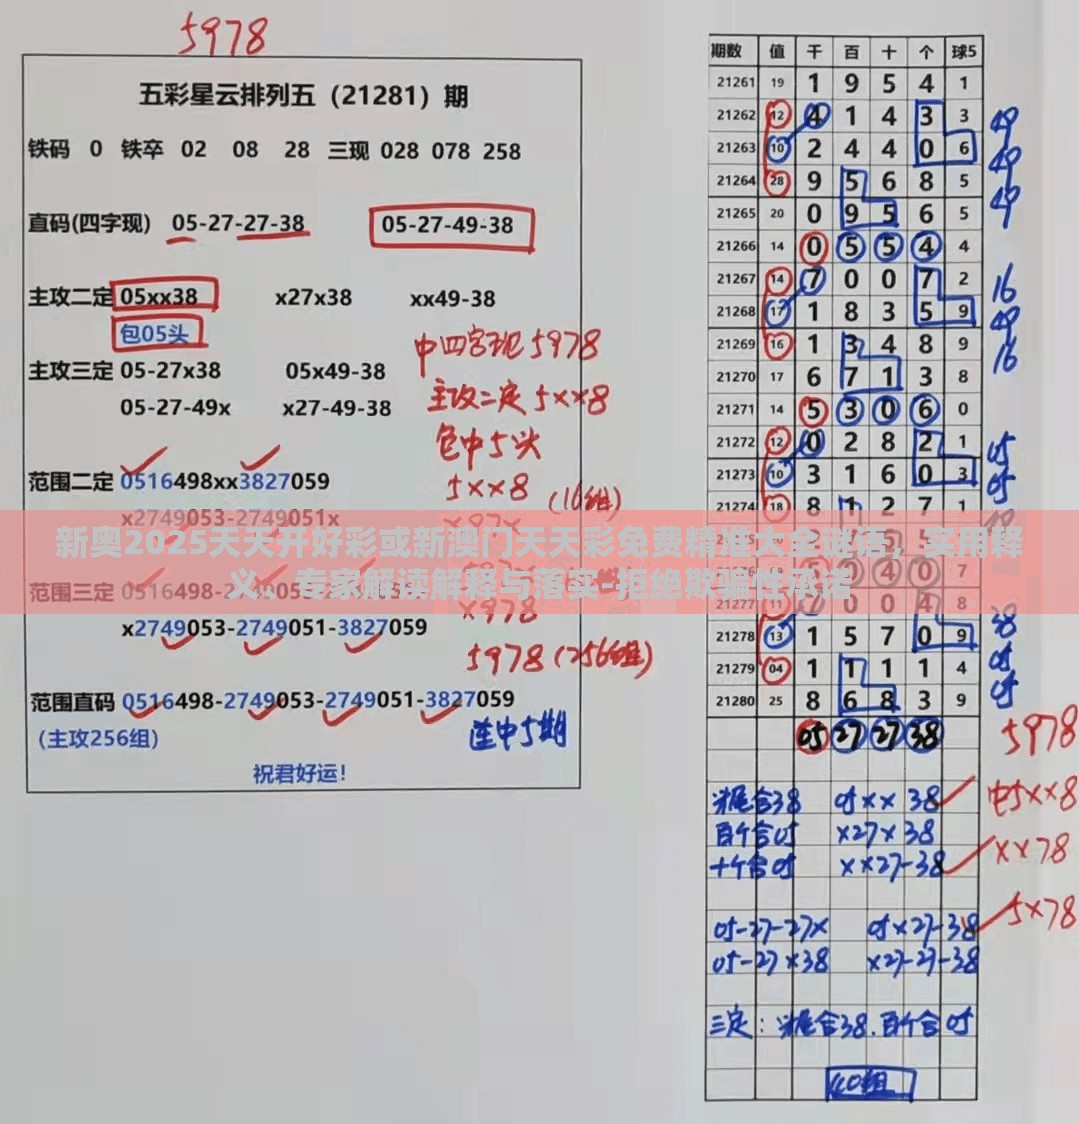 5978
五彩星云排列五（21281）期
铁码 0 铁卒 02 08 28 三现 028 078 258
直码(四字现) 05-27-27-38 05-27-49-38
主攻二定 05xx38 x27x38 xx49-38
包05头
主攻三定 05-27x38 05x49-38
05-27-49x x27-49-38
范围二定 0516498xx3827059
x2749053-2749051x
范围三定 0516498-2749053
x2749053-2749051-3827059
范围直码 0516498-2749053-2749051-3827059
(主攻256组)
祝君好运！
中四字现 5978
主攻二定 5xx8
包中5头
5xx8 (16组)
x97x
x978
5978 (256组)
连中5期
新奥2025天天开好彩或新澳门天天彩免费精准大全谜语，实用释
义、专家解读解释与落实-拒绝欺骗性承诺
期数 值 千 百 十 个 球5
21261 19 1 9 5 4 1
21262 12 4 1 4 3 3 49
21263 10 2 4 4 0 6 49
21264 28 9 5 6 8 5 49
21265 20 0 9 5 6 5
21266 14 0 5 5 4 4
21267 14 7 0 0 7 2 16
21268 17 1 8 3 5 9 49
21269 16 1 3 4 8 9 16
21270 17 6 7 1 3 8
21271 14 5 3 0 6 0
21272 12 0 2 8 2 1 05
21273 10 3 1 6 0 3 05
21274 18 8 1 2 7 1
4 0 7
21277 11 0 0 4 8
21278 13 1 5 7 0 9 38
21279 04 1 1 1 1 4 05
21280 25 8 6 8 3 9 05
05 27 27 38 5978
头尾合38 05xx38 中5xx8
百个合05 x27x38 xx78
十个合05 xx27-38
05-27-27x 05x27-38 5x78
05-27x38 x27-27-38
三定：头尾合38.百个合05
40组